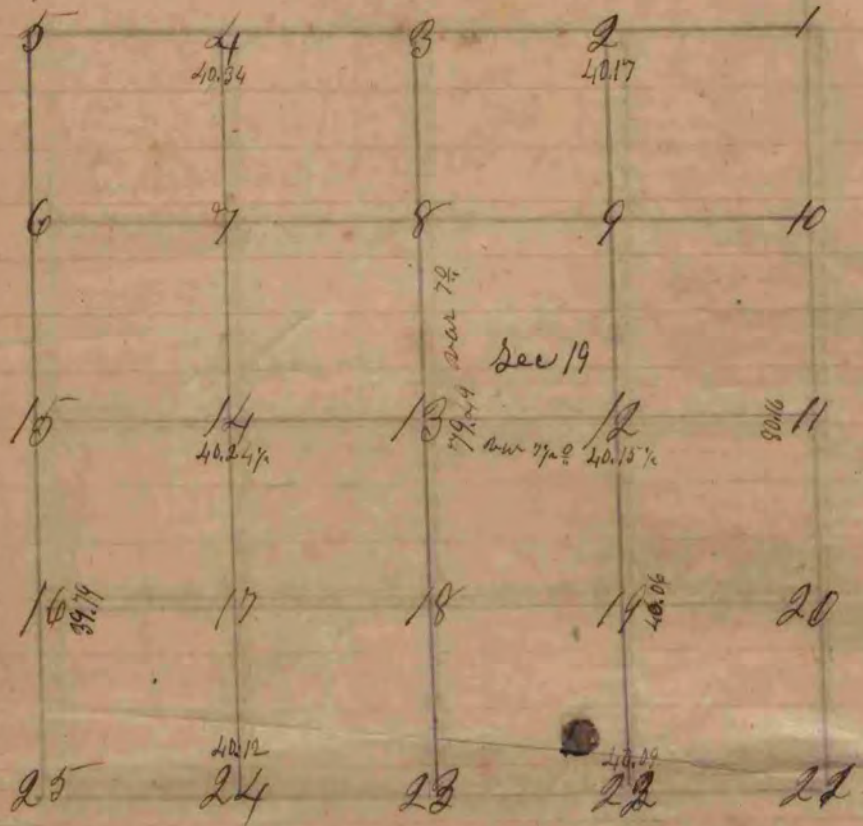 5 4 3 2 1
40.34 40.17
6 7 8 9 10
var 7º
Sec 19
79.49
15 14 13 12 11
80.16
40.24½ var 7½º 40.15½
16 17 18 19 20
39.79 40.06
40.12 40.09
25 24 23 22